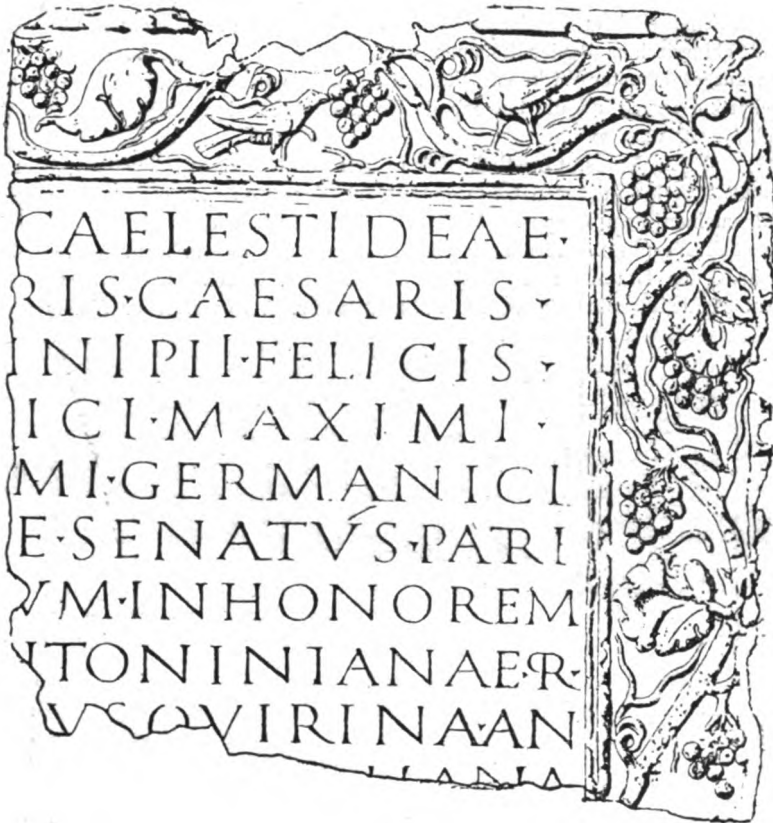 CAELESTI DEAE·
RIS·CAESARIS·
INI PII·FELICIS·
ICI·MAXIMI·
MI·GERMANICI
E·SENATVS·PATRI
VM·IN HONOREM
NTONINIANAE·R·
QVIRINA·AN